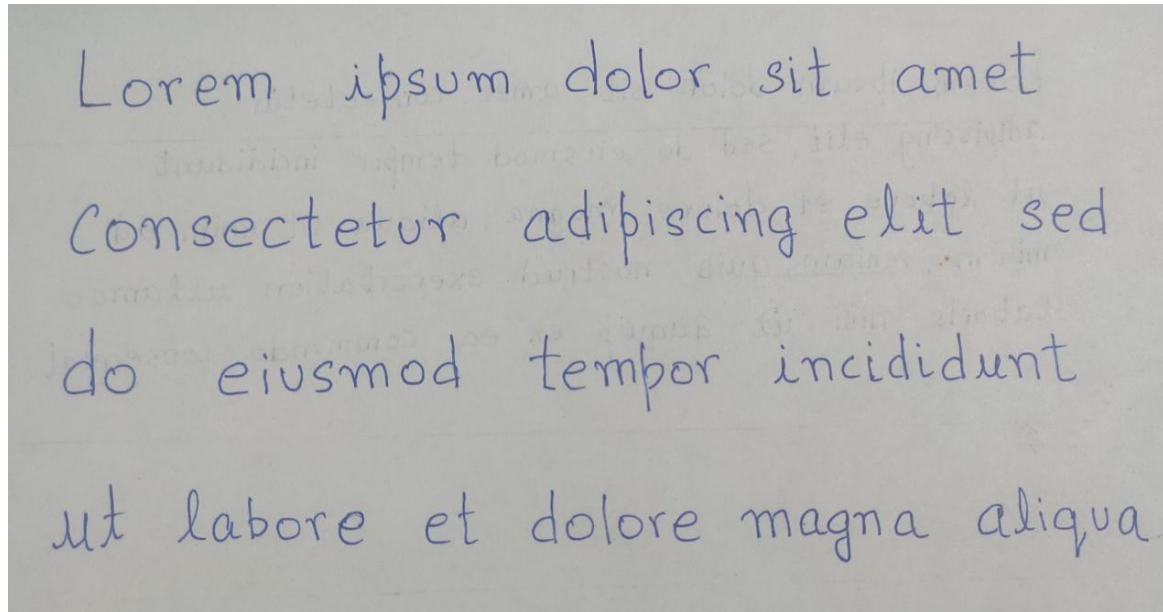 Lorem ipsum dolor sit amet
Consectetur adipiscing elit sed
do eiusmod tempor incididunt
ut labore et dolore magna aliqua